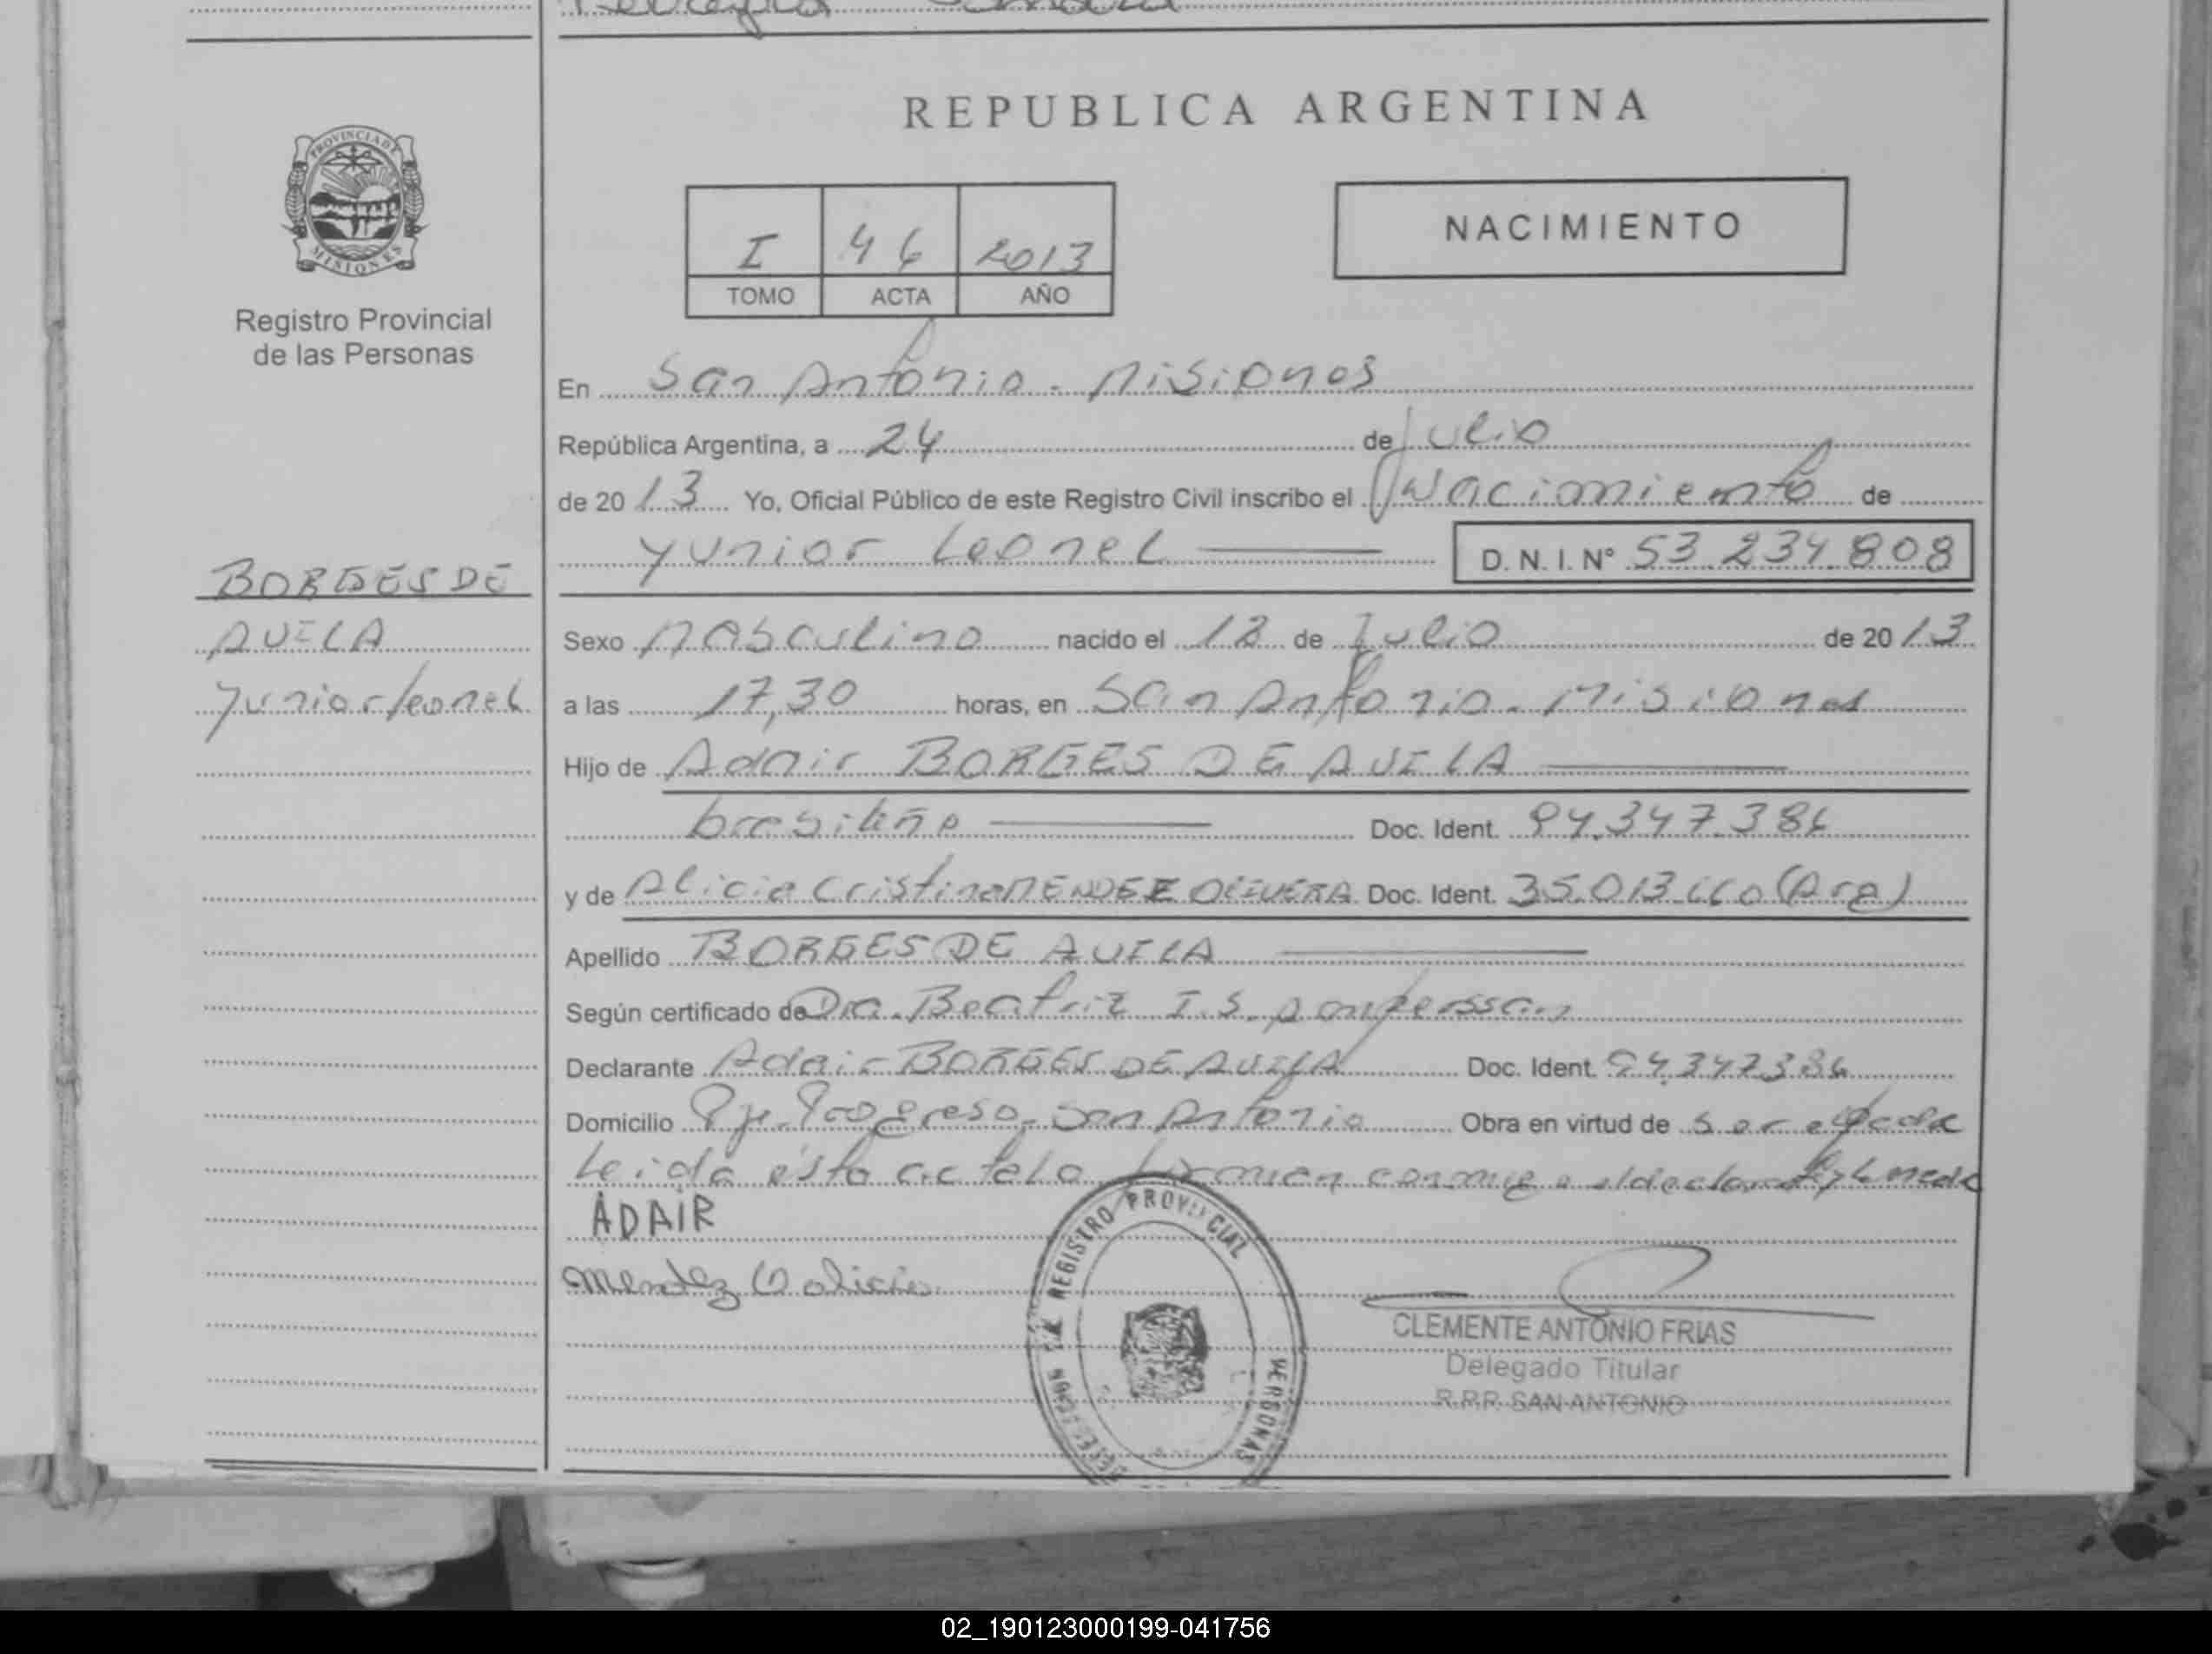 REPUBLICA ARGENTINA
PROVINCIA DE
MISIONES
Registro Provincial
de las Personas
I 46 2013
TOMO ACTA AÑO
NACIMIENTO
En San Antonio - Misiones
República Argentina, a 24 de Julio
de 20 13 Yo, Oficial Público de este Registro Civil inscribo el Nacimiento de
Yunior Leonel D.N.I. Nº 53.234.808
BORGES DE
AVILA
Yunior Leonel
Sexo Masculino nacido el 18 de Julio de 20 13
a las 17,30 horas, en San Antonio - Misiones
Hijo de Adair BORGES DE AVILA
brasileño Doc. Ident. 94.347.386
y de Alicia Cristina MENDEZ OLIVERA Doc. Ident. 35.013.660 (Arg)
Apellido BORGES DE AVILA
Según certificado de Dra. Beatriz I. S.
Declarante Adair BORGES DE AVILA Doc. Ident. 94.347.386
Domicilio Pje. Progreso - San Antonio Obra en virtud de ser
Leida ésta acta la firman conmigo el declarante y la madre
ADAIR
Mendez Alicia
REGISTRO PROVINCIAL
PERSONAS
CLEMENTE ANTONIO FRIAS
Delegado Titular
R.P.P. SAN ANTONIO
02_190123000199-041756